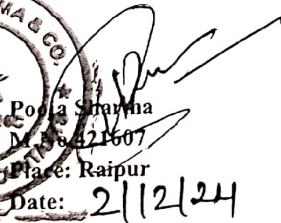 MA & CO.
Pooja Sharma
M.No 421607
Place: Raipur
Date: 2/12/24